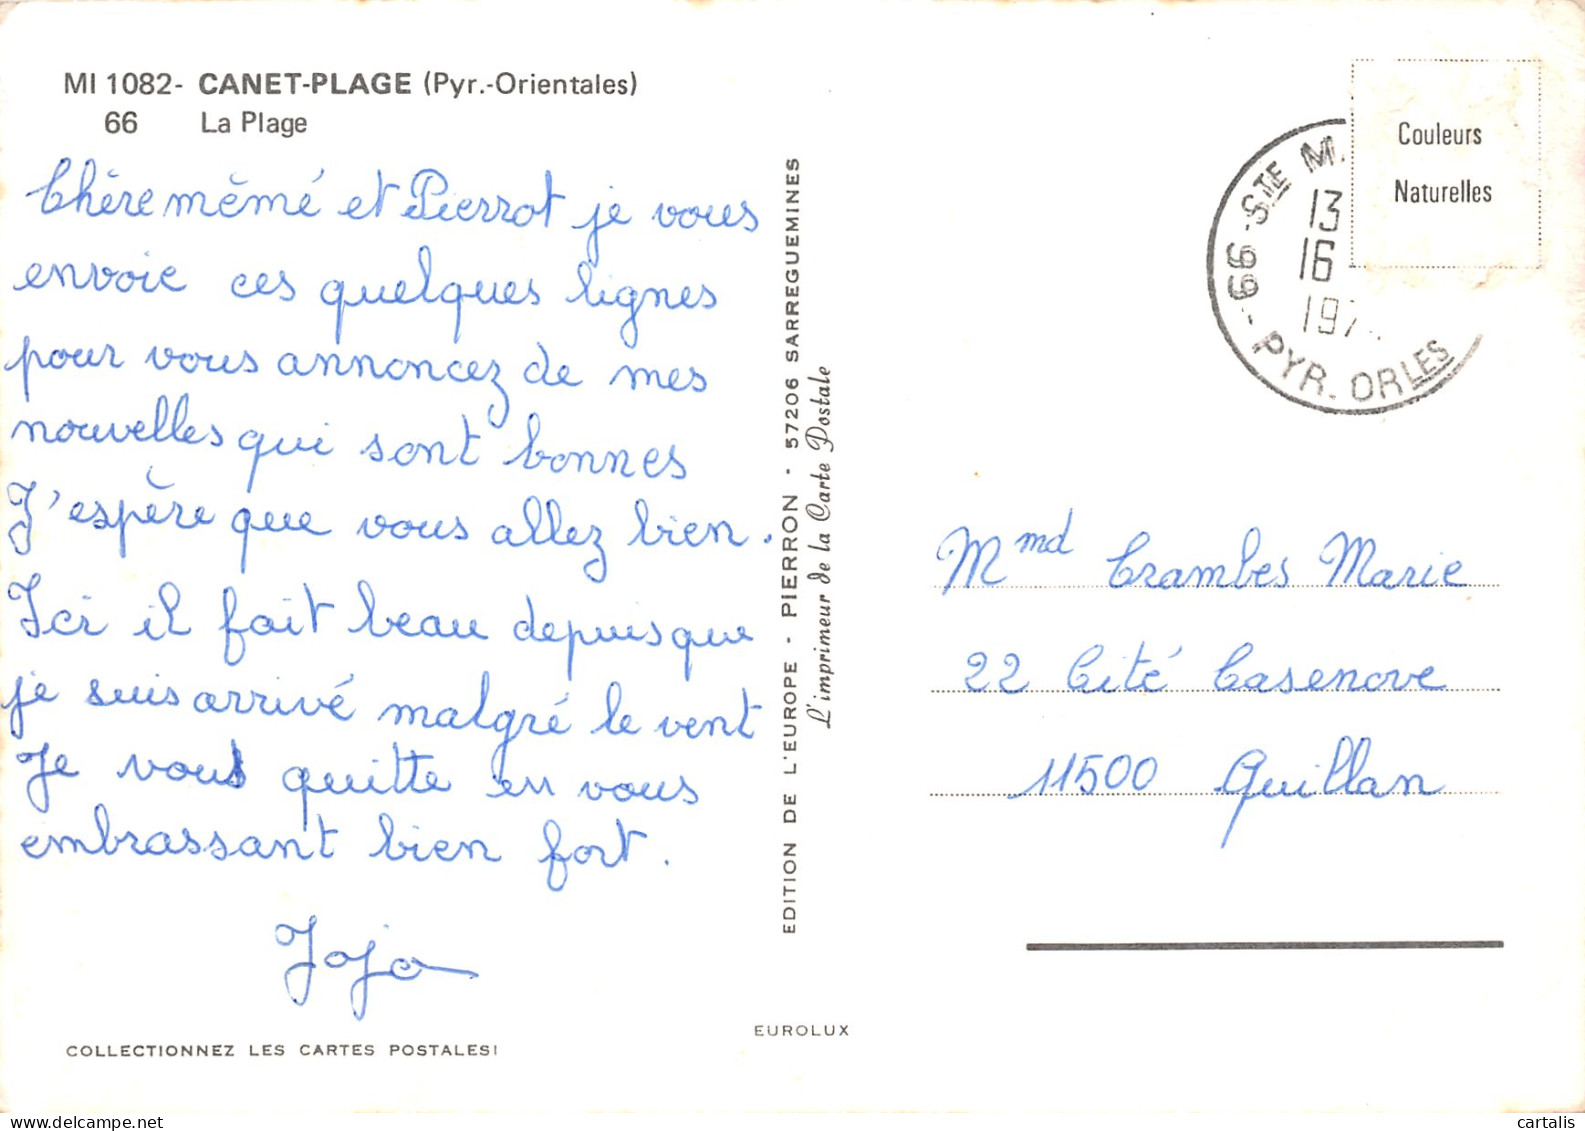 MI 1082- CANET-PLAGE (Pyr.-Orientales)
66 La Plage
Chère mémé et Pierrot je vous
envoie ces quelques lignes
pour vous annoncez de mes
nouvelles qui sont bonnes
J'espère que vous allez bien.
Ici il fait beau depuis que
je suis arrivé malgré le vent
Je vous quitte en vous
embrassant bien fort.
Jojo
COLLECTIONNEZ LES CARTES POSTALES!
EDITION DE L'EUROPE - PIERRON - 57206 SARREGUEMINES
L'imprimeur de la Carte Postale
EUROLUX
Couleurs
Naturelles
66 - STE M.
13
16
197
PYR. ORLES
Mmd Crambes Marie
22 Cité Casenove
11500 Quillan
cartalis